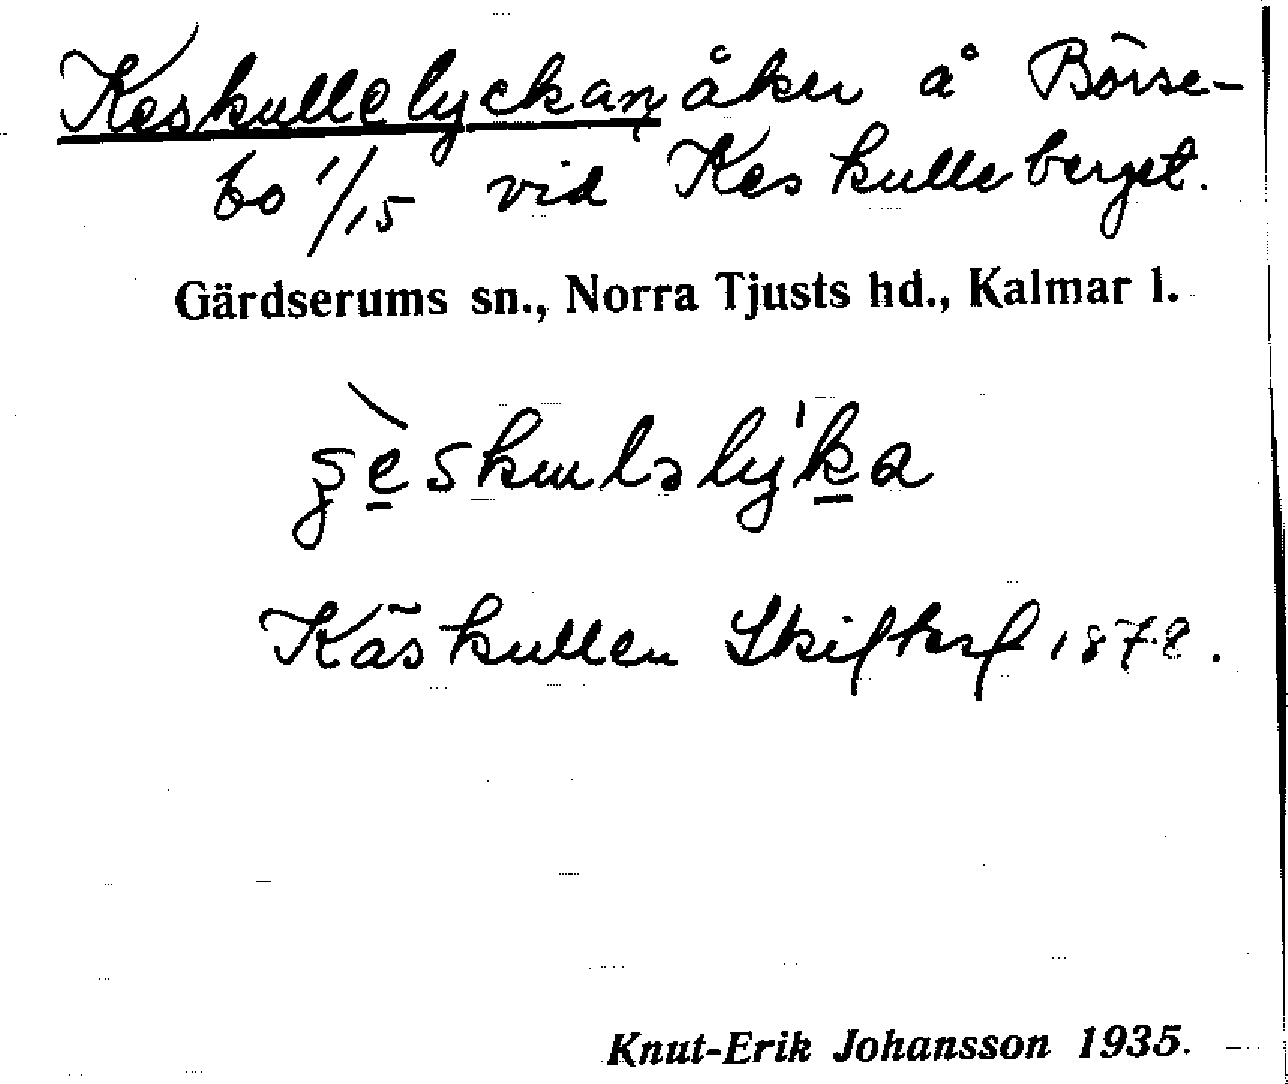 Keskullelyckan åker å Börse-
bo 1/15 vid Keskulleberget.
Gärdserums sn., Norra Tjusts hd., Kalmar l.
Käskullen Skifteskf 1878.
Knut-Erik Johansson 1935.